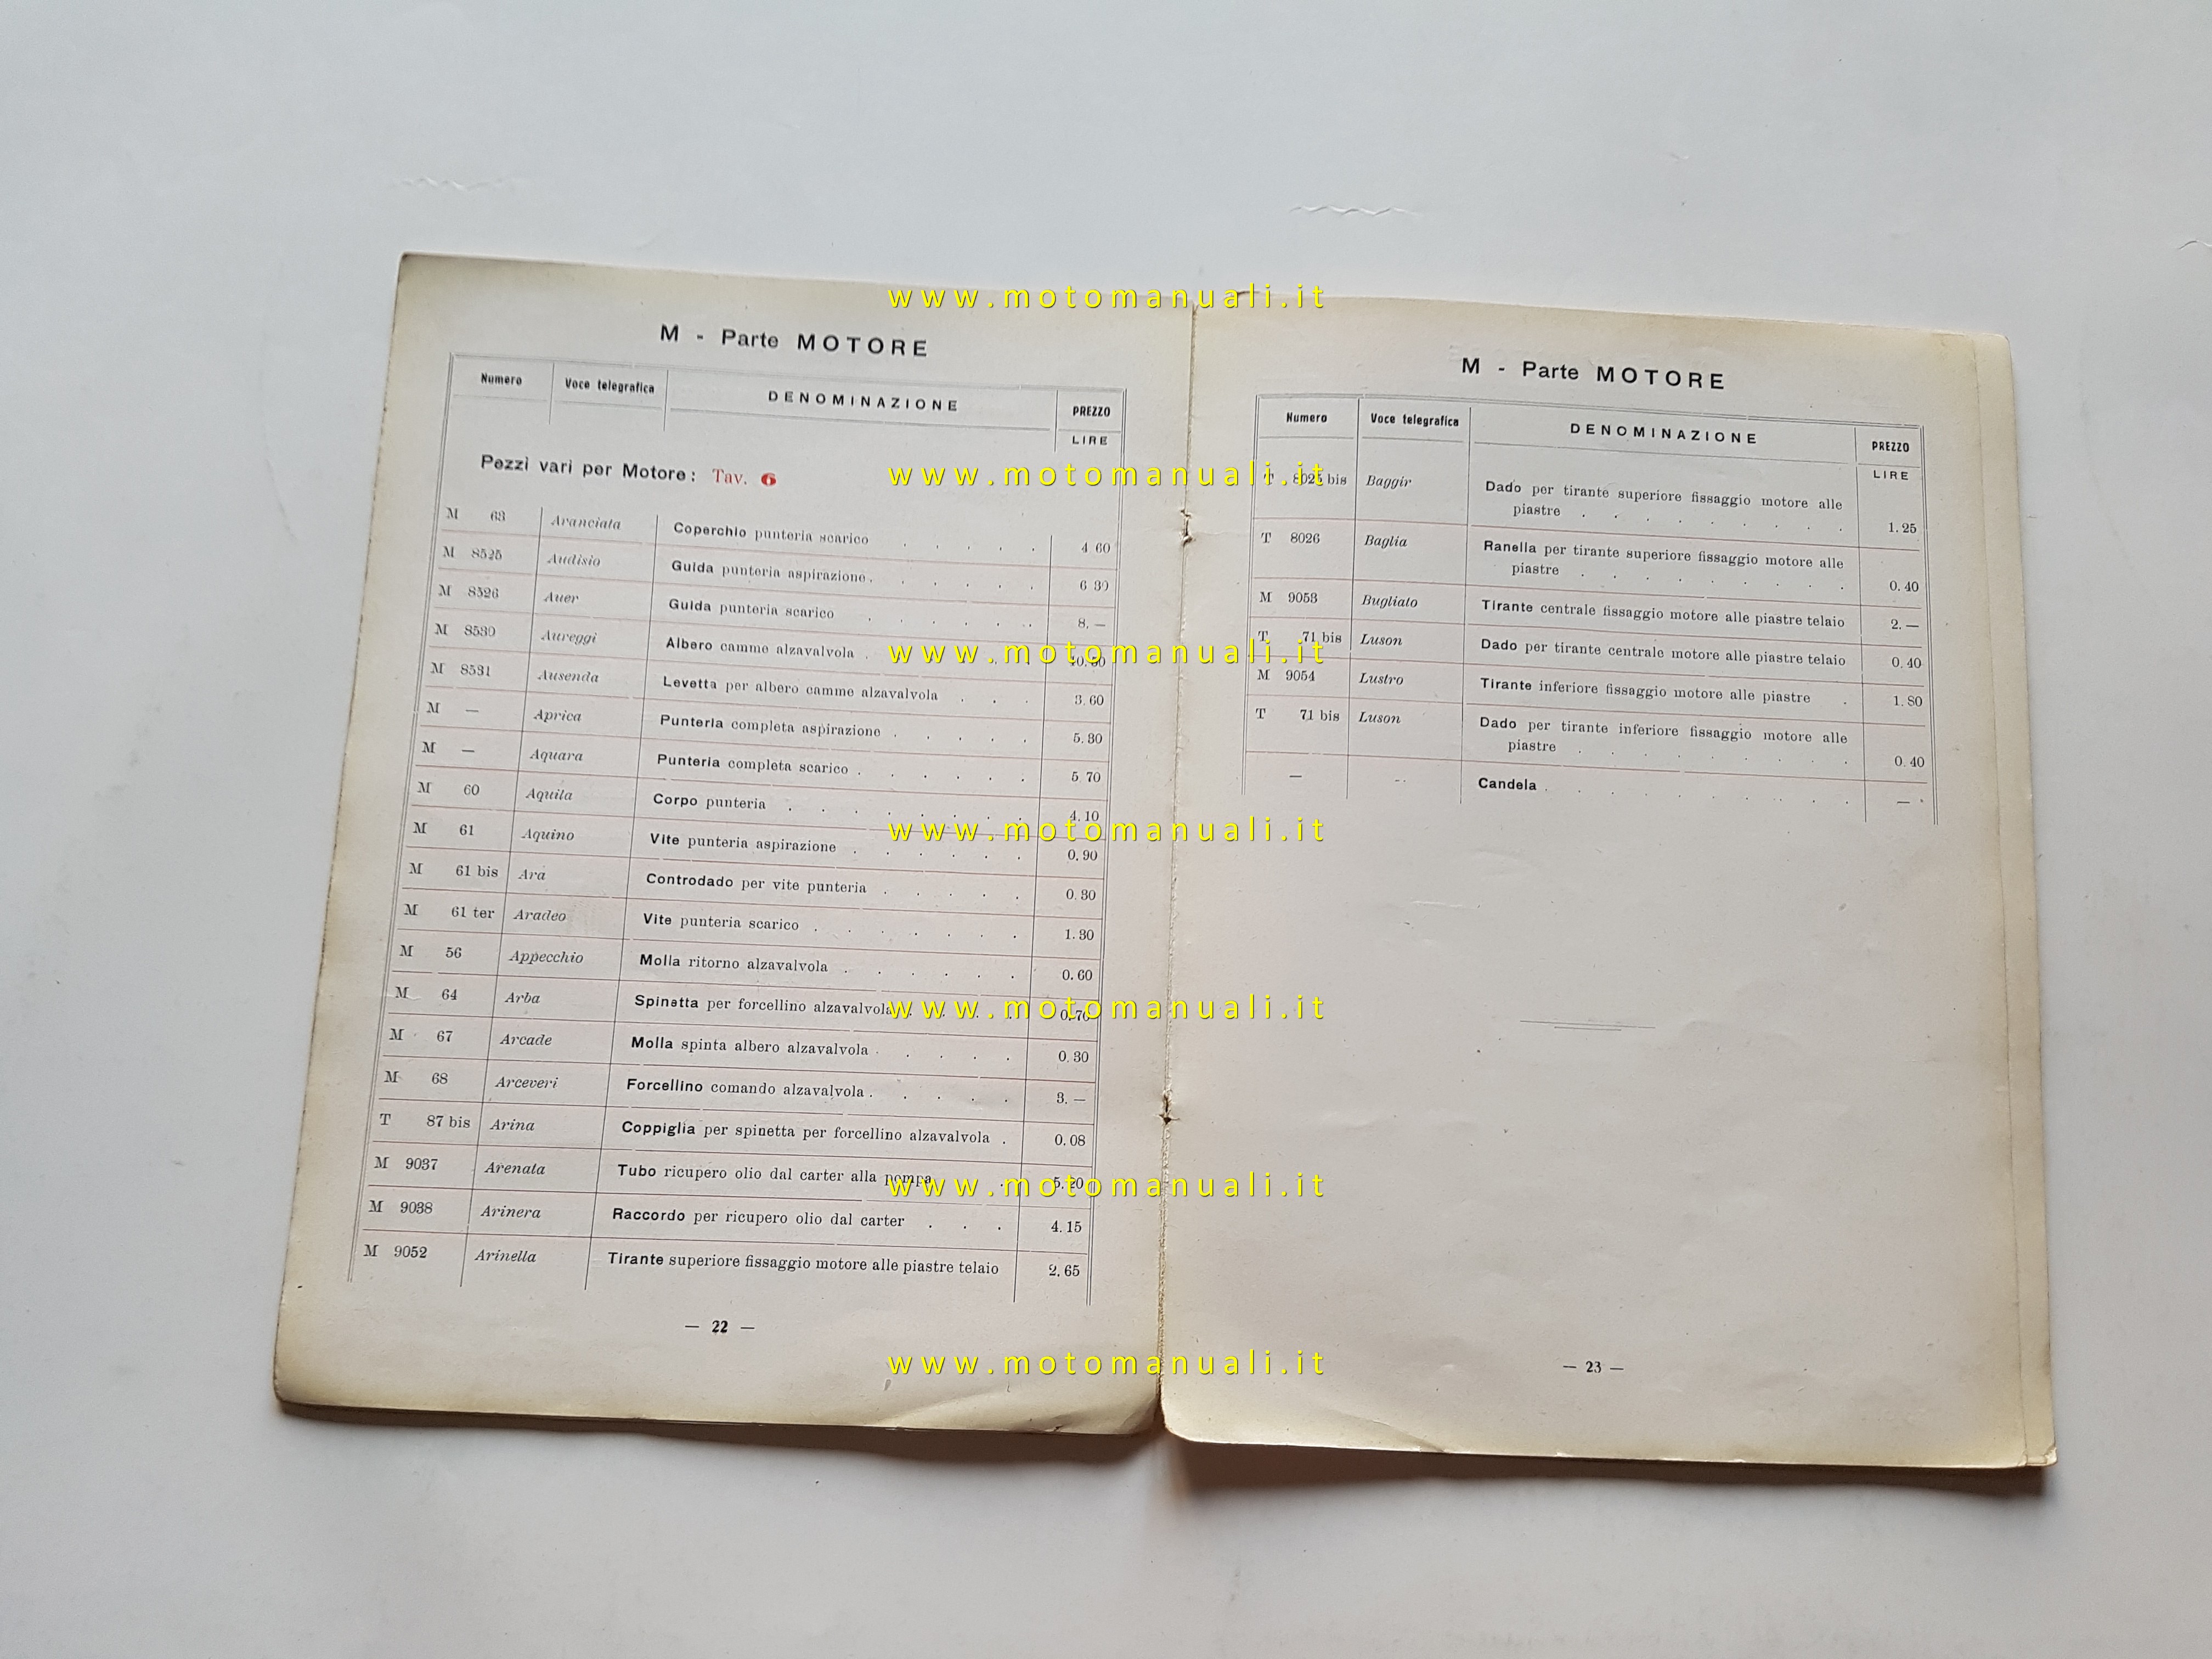 M - Parte MOTORE
Numero Voce telegrafica DENOMINAZIONE PREZZO
LIRE
Pezzi vari per Motore: Tav. 6
M 63 Aranciata Coperchio punteria scarico . . . . . 4 60
M 8525 Audisio Guida punteria aspirazione . . . . . . 6 30
M 8526 Auer Guida punteria scarico . . . . . . 8. —
M 8530 Aureggi Albero camme alzavalvola .
M 8531 Ausenda Levetta per albero camme alzavalvola . . . 3.60
M — Aprica Punteria completa aspirazione . . . . . 5.80
M — Aquara Punteria completa scarico . . . . . . 5 70
M 60 Aquila Corpo punteria . . . . . . . . 4.10
M 61 Aquino Vite punteria aspirazione . . . . . . 0.90
M 61 bis Ara Controdado per vite punteria . . . . . 0.30
M 61 ter Aradeo Vite punteria scarico . . . . . . . 1.30
M 56 Appecchio Molla ritorno alzavalvola . . . . . . 0.60
M 64 Arba Spinetta per forcellino alzavalvola . . . . 0.70
M 67 Arcade Molla spinta albero alzavalvola . . . . . 0.30
M 68 Arceveri Forcellino comando alzavalvola . . . . . 3. —
T 87 bis Arina Coppiglia per spinetta per forcellino alzavalvola . 0.08
M 9037 Arenata Tubo ricupero olio dal carter alla pompa . 5.20
M 9038 Arinera Raccordo per ricupero olio dal carter . . . 4.15
M 9052 Arinella Tirante superiore fissaggio motore alle piastre telaio 2.65
— 22 —
M - Parte MOTORE
Numero Voce telegrafica DENOMINAZIONE PREZZO
LIRE
T 8025 bis Baggir Dado per tirante superiore fissaggio motore alle
piastre . . . . . . . . . 1.25
T 8026 Baglia Ranella per tirante superiore fissaggio motore alle
piastre . . . . . . . . . 0.40
M 9053 Bugliato Tirante centrale fissaggio motore alle piastre telaio 2. —
T 71 bis Luson Dado per tirante centrale motore alle piastre telaio 0.40
M 9054 Lustro Tirante inferiore fissaggio motore alle piastre . 1.80
T 71 bis Luson Dado per tirante inferiore fissaggio motore alle
piastre . . . . . . . . . 0.40
— — Candela . . . . . . . . . . —
— 23 —
www.motomanuali.it
www.motomanuali.it
www.motomanuali.it
www.motomanuali.it
www.motomanuali.it
www.motomanuali.it
www.motomanuali.it